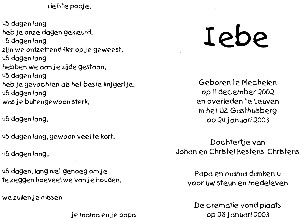 liefste poepie,
45 dagen lang
heb je onze dagen gekleurd,
45 dagen lang
zijn we ontzettend fier op je geweest,
45 dagen lang
hebben we aan je zijde gestaan,
45 dagen lang
heb je gevochten als het beste knijgertje,
45 dagen lang
was je buitengewoon sterk,
45 dagen lang,
45 dagen lang, gewoon veel te kort.
45 dagen lang,
45 dagen, lang niet genoeg om je
te zeggen hoeveel we van je houden,
we zullen je missen
je mama en je papa
Iebe
Geboren te Mechelen
op 11 december 2002
en overleden te Leuven
in het UZ Gasthuisberg
op 24 januari 2003
Dochtertje van
Johan en Christel Kestens - Christens
Papa en mama danken u
voor uw steun en medeleven
De crematie vond plaats
op 28 januari 2003